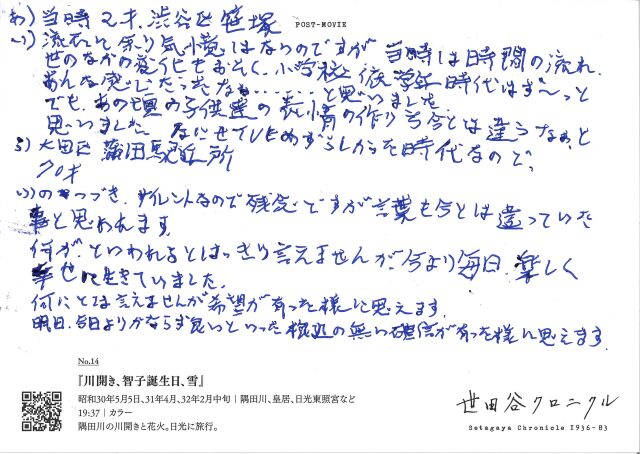 あ) 当時 2才. 渋谷区 笹塚
POST-MOVIE
い) 流れて 余り気憶はないのですが 当時は時間の流れ.
世のなかの変化もおそく. 小学校 低学年時代はず〜っと
あんな感じだったなぁ・・・・・・と思いました
でも. あの頃の子供達の表情の作り方今とは違うなぁ、と
思いました. なにせてTVもめずらしかった時代なので、
う) 大田区 蒲田駅近所
い)のつづき. サイレントなので残念ですが言葉も今とは違っていた
事と思われます.
何が. といわれるとはっきり言えませんが. 今より毎日. 楽しく
幸せに生きていました.
何にとは言えませんが希望が有った様に思えます.
明日. 今日よりかならず良いといった 根拠の無い確信が有った様に思えます.
No.14
『川開き、智子誕生日、雪』
昭和30年5月5日、31年4月、32年2月中旬｜隅田川、皇居、日光東照宮など
19:37｜カラー
隅田川の川開きと花火。日光に旅行。
世田谷クロニクル
Setagaya Chronicle 1936-83